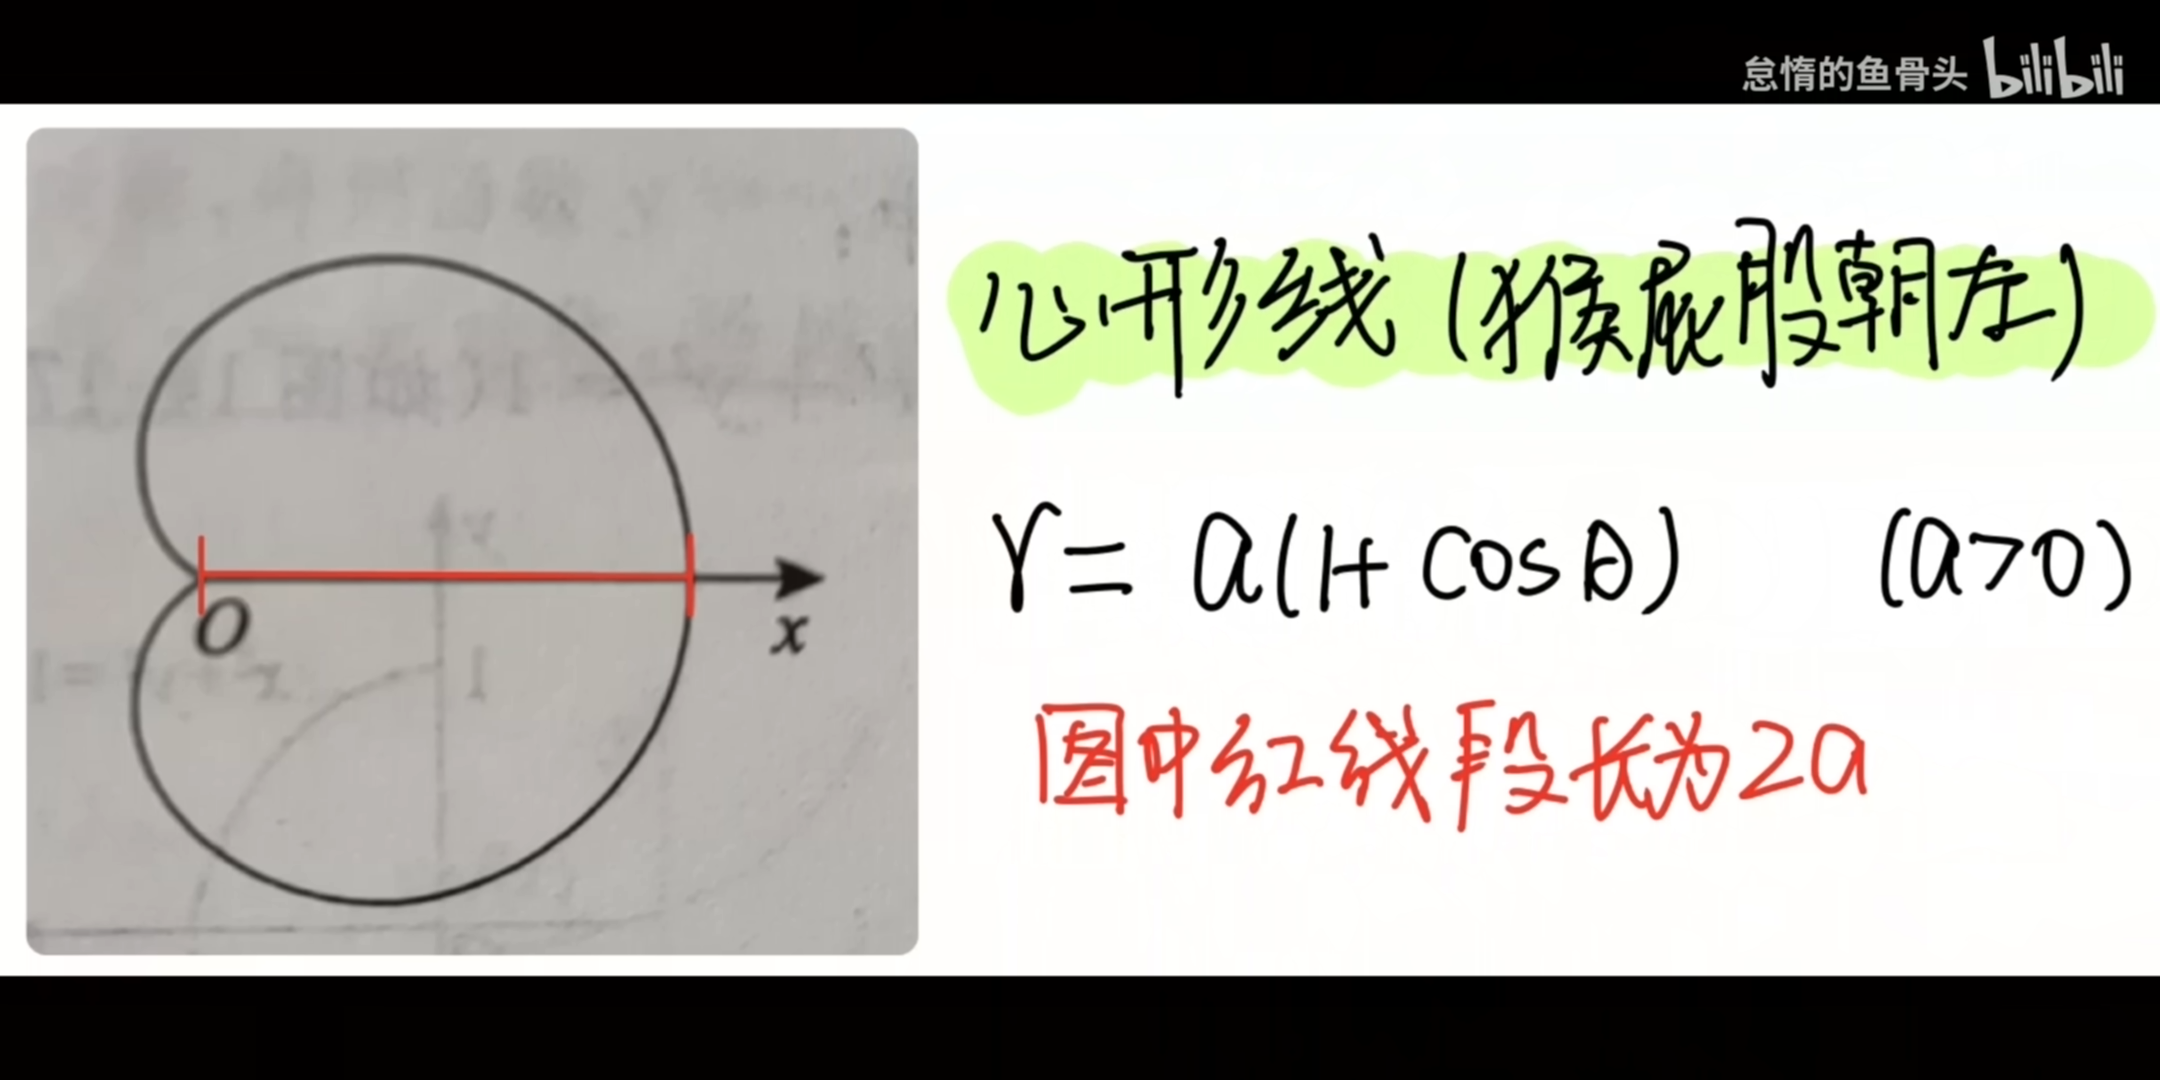 怠惰的鱼骨头 bilibili
心形线(猴屁股朝左)
r = a(1+cosθ) (a>0)
O
x
图中红线段长为2a